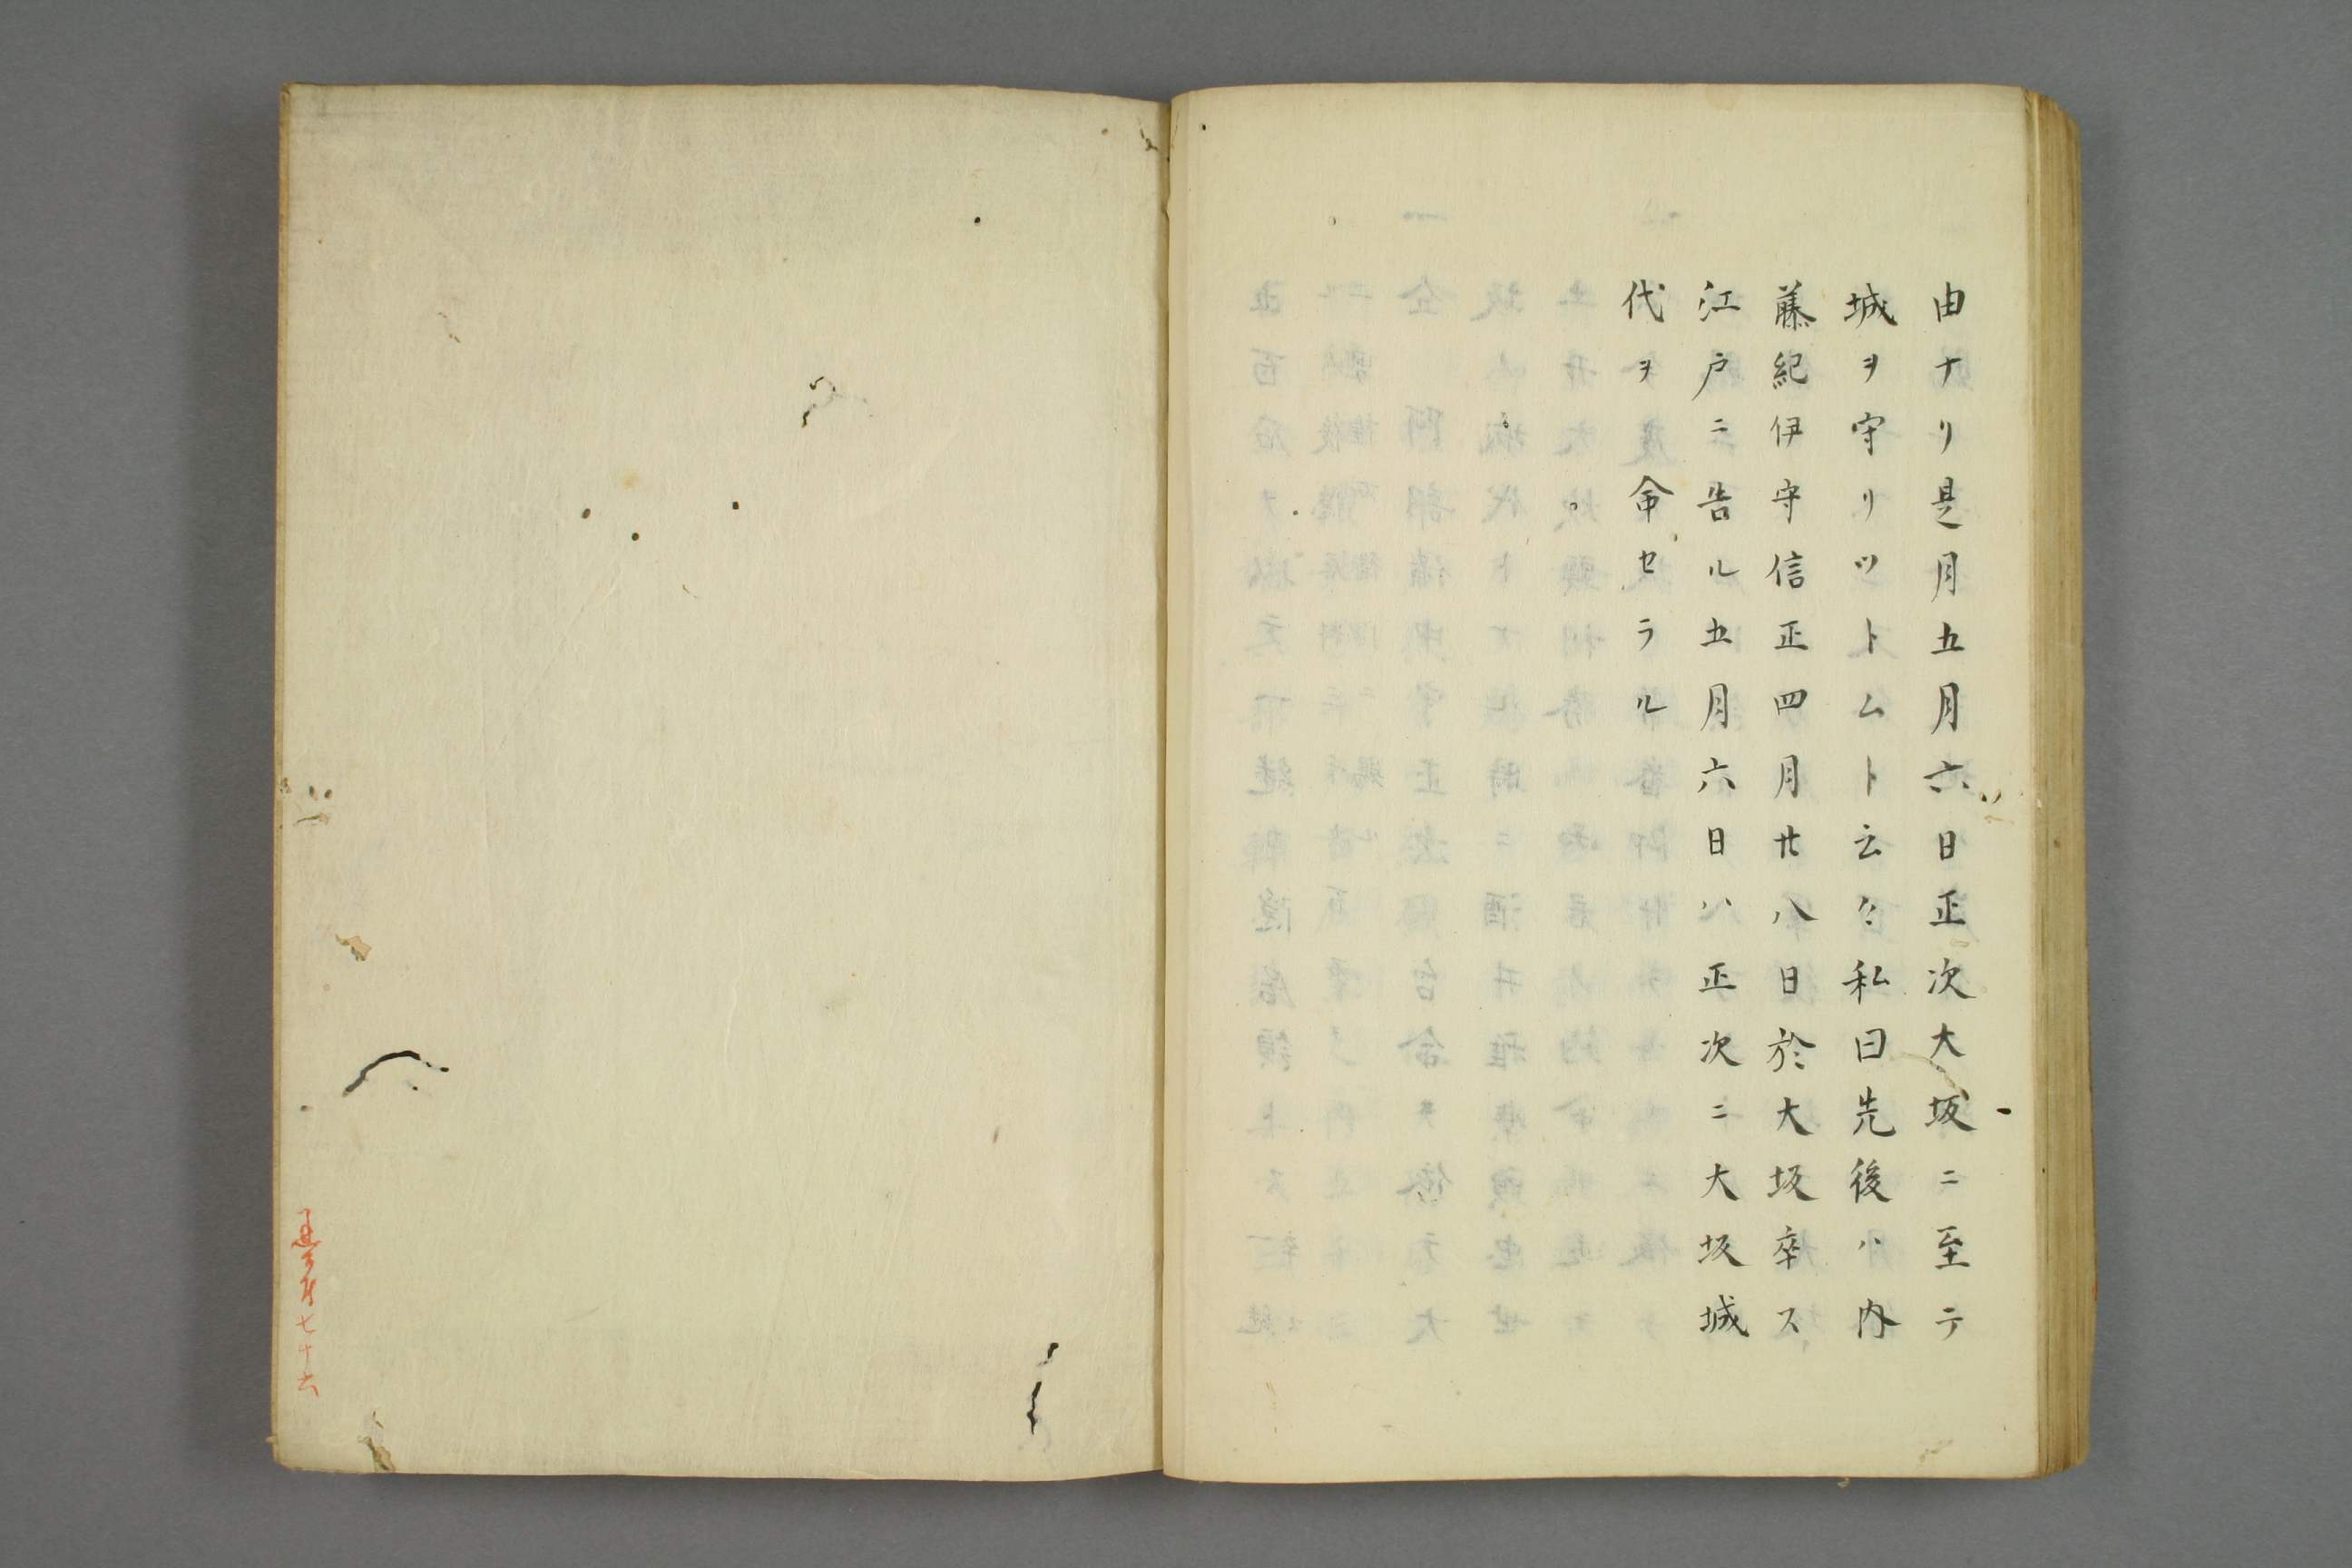 由ナリ是月五月六日正次大坂ニ至テ
城ヲ守リツトムト云々私曰先後ハ内
藤紀伊守信正四月廿八日於大坂卒ス
江戸ニ告ル五月六日ハ正次ニ大坂城
代ヲ命セラル
七十六